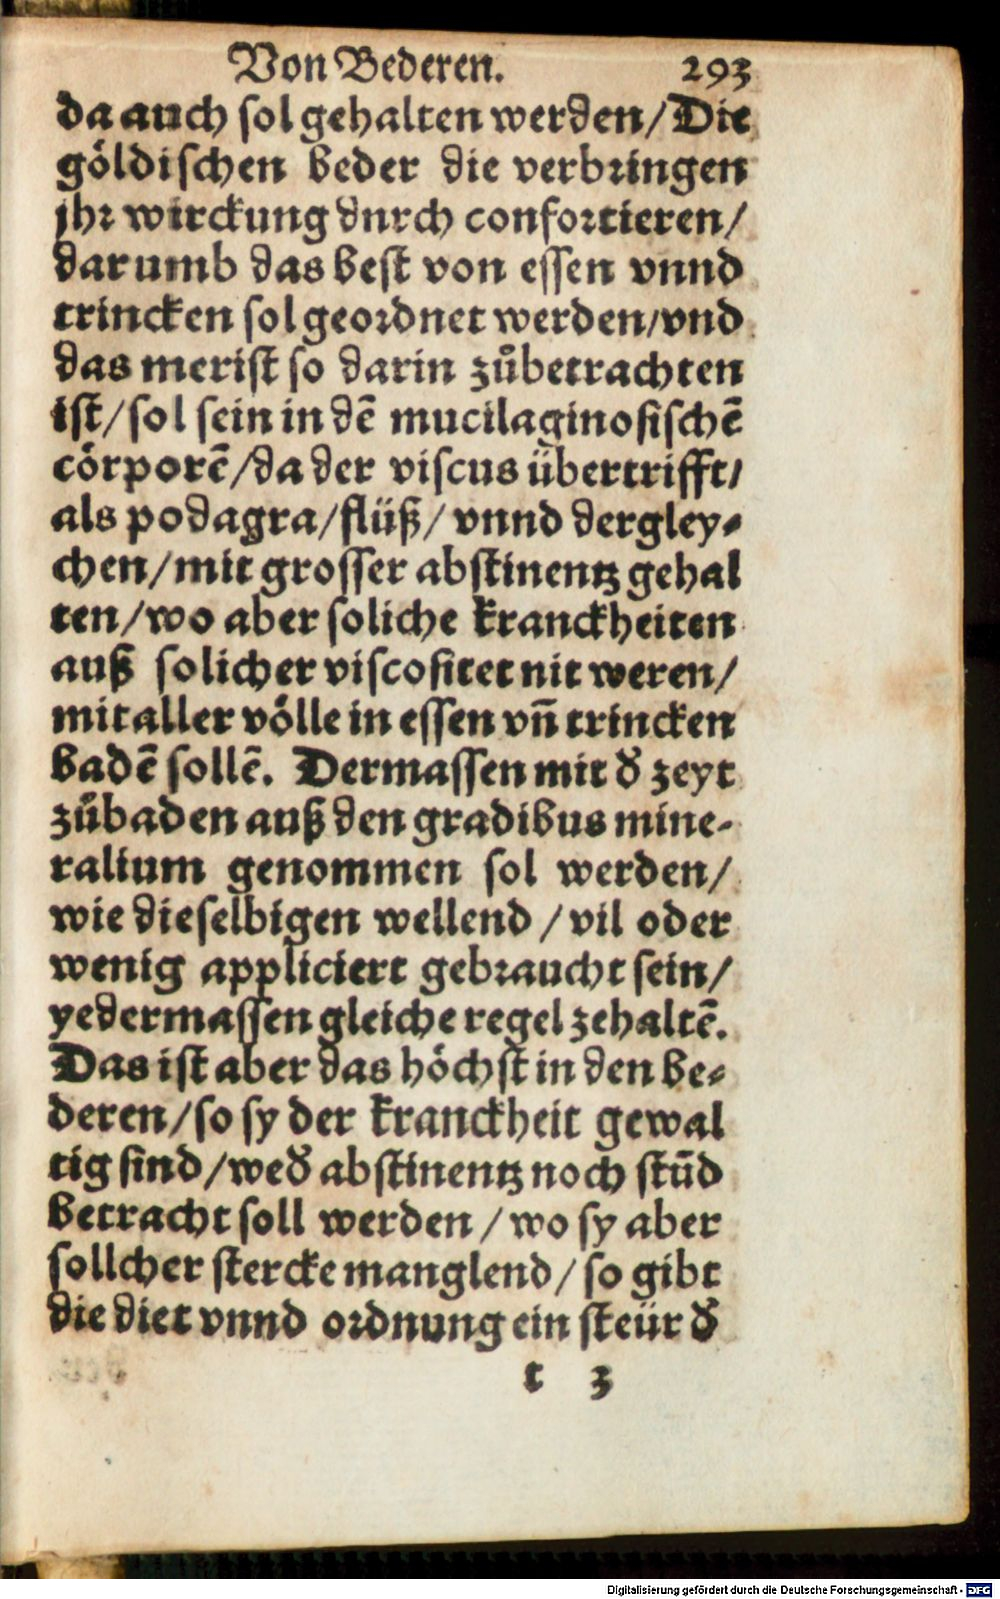 Von Bederen. 293
da auch sol gehalten werden/Die
göldischen beder die verbringen
jhr wirckung dnrch confortieren/
darumb das best von essen vnnd
trincken sol geordnet werden/vnd
das merist so darin zůbetrachten
ist/sol sein in dē mucilaginosischē
cörporē/da der viscus übertrifft/
als podagra/flüß/vnnd dergley⸗
chen/mit grosser abstinentz gehal
ten/wo aber soliche kranckheiten
auß solicher viscositet nit weren/
mit aller völle in essen vñ trincken
badē sollē. Dermassen mit d̕ zeyt
zůbaden auß den gradibus mine⸗
ralium genommen sol werden/
wie dieselbigen wellend/vil oder
wenig appliciert gebraucht sein/
yedermassen gleiche regel zehaltē.
Das ist aber das höchst in den be⸗
deren/so sy der kranckheit gewal
tig sind/wed̕ abstinentz noch stūd
betracht soll werden/wo sy aber
sollcher stercke manglend/so gibt
die diet vnnd ordnung ein steür d̕
t 3
Digitalisierung gefördert durch die Deutsche Forschungsgemeinschaft - DFG